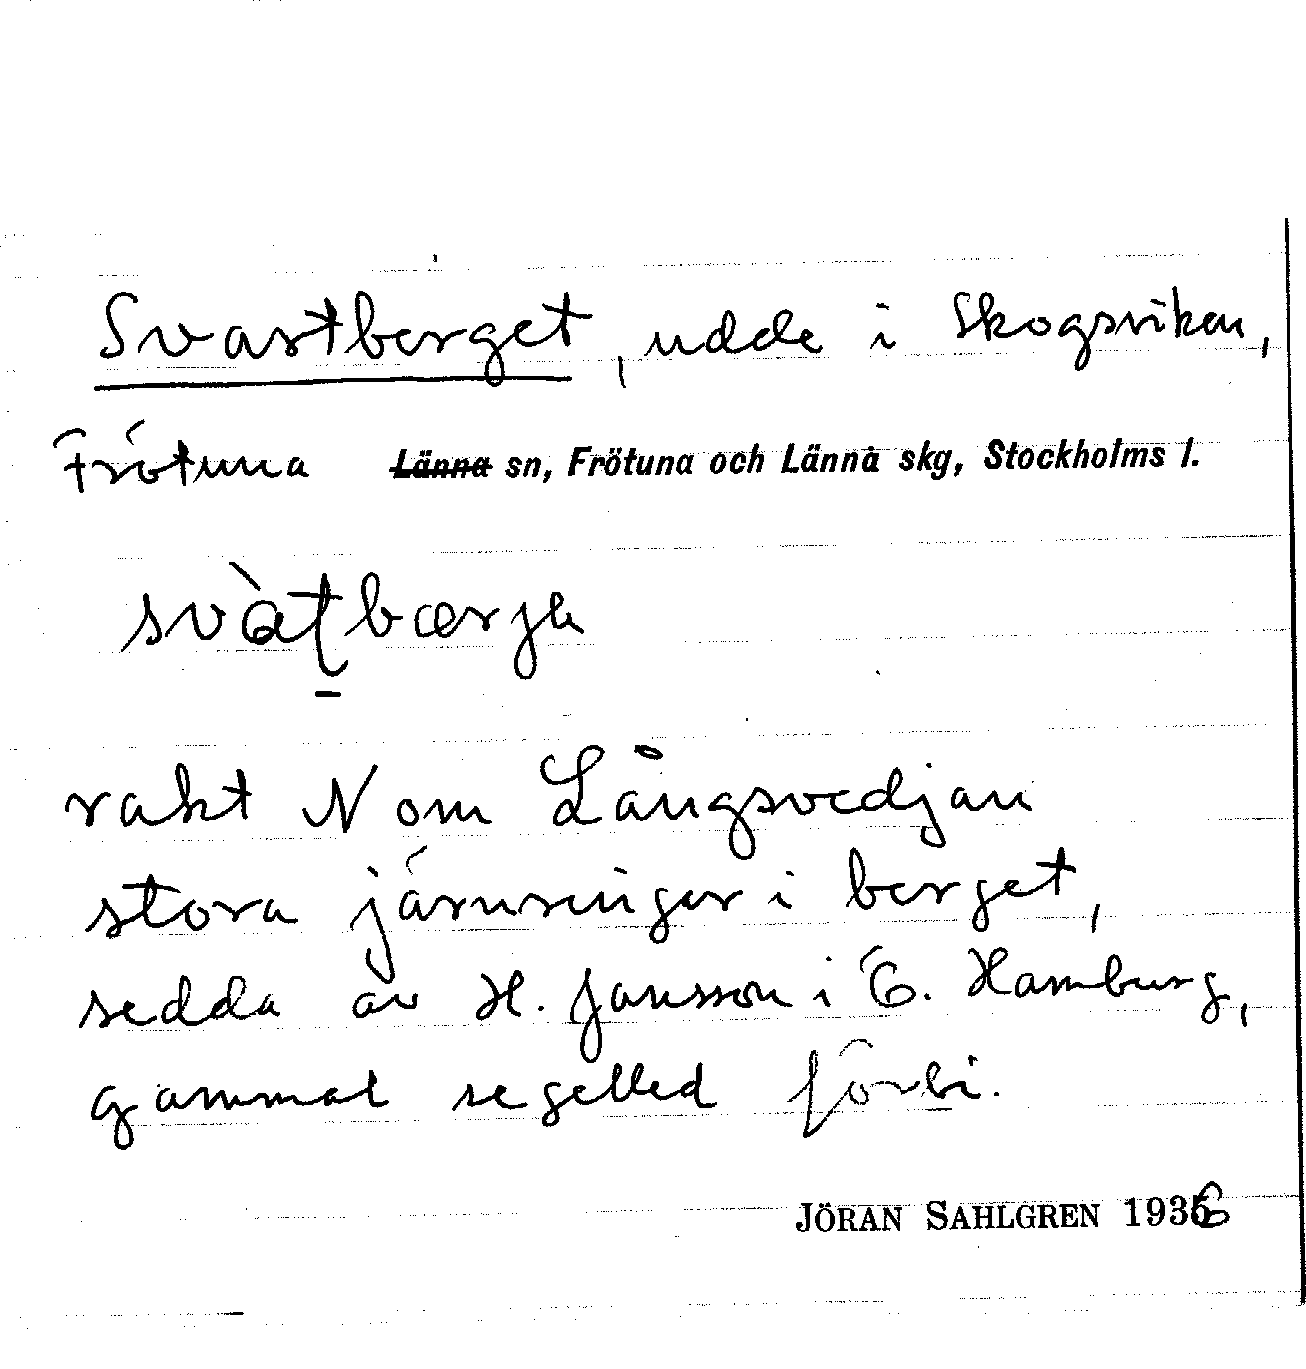 Svartberget, udde i Skogsviken,
Frötuna Länna sn, Frötuna och Länna skg, Stockholms l.
svàtbærje
rakt N om Långsvedjan
stora järnringar i berget,
sedda av H. Jansson i Ö. Hamburg,
gammal segelled förbi.
JÖRAN SAHLGREN 1936